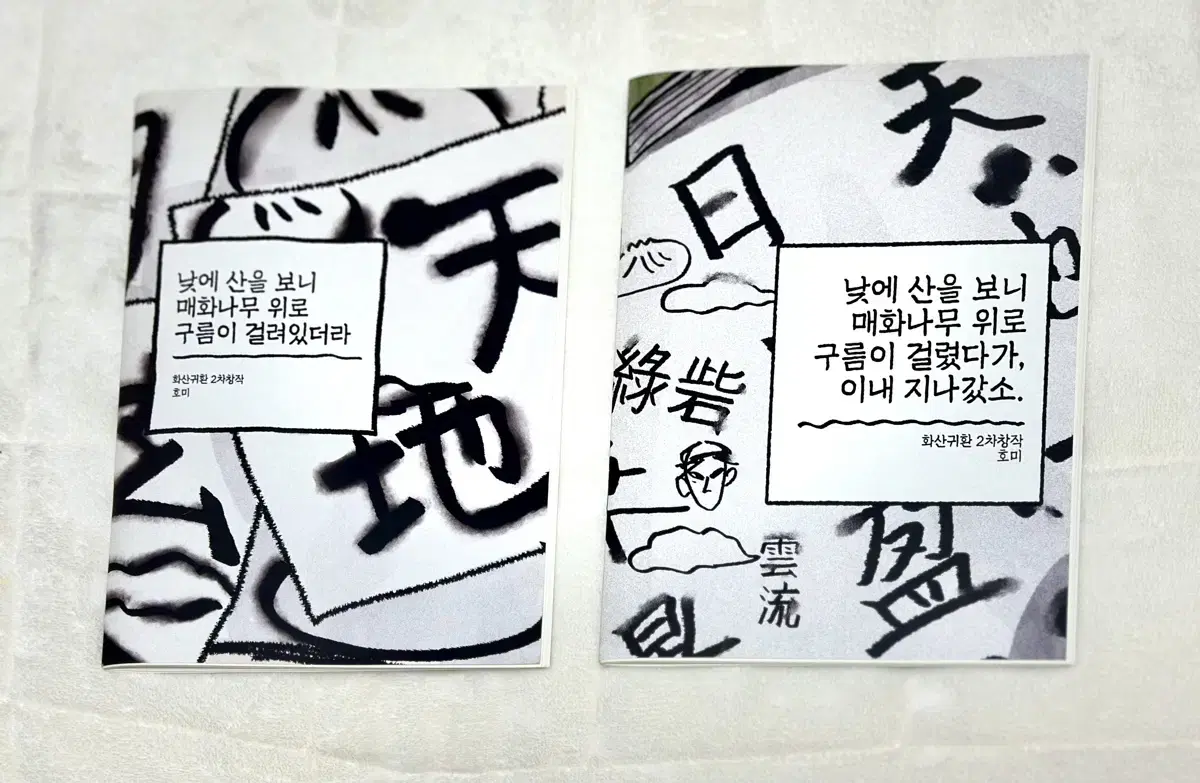 天
地
낮에 산을 보니
매화나무 위로
구름이 걸려있더라
화산귀환 2차창작
호미
天
日
낮에 산을 보니
매화나무 위로
구름이 걸렸다가,
이내 지나갔소.
화산귀환 2차창작
호미
綠
砦
雲
流
盈